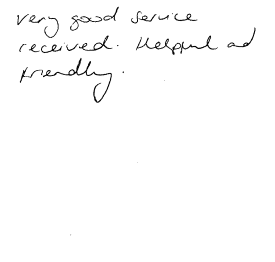 very good service
received. Helpful and
friendly.